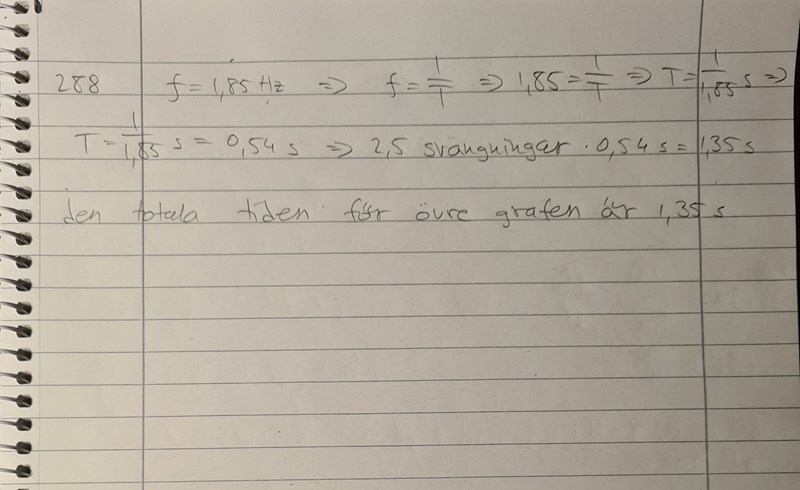 288 f = 1,85 Hz => f = 1/T => 1,85 = 1/T => T = 1/1,85 s =>
T = 1/1,85 s = 0,54 s => 2,5 svängningar · 0,54 s = 1,35 s
den totala tiden för övre grafen är 1,35 s